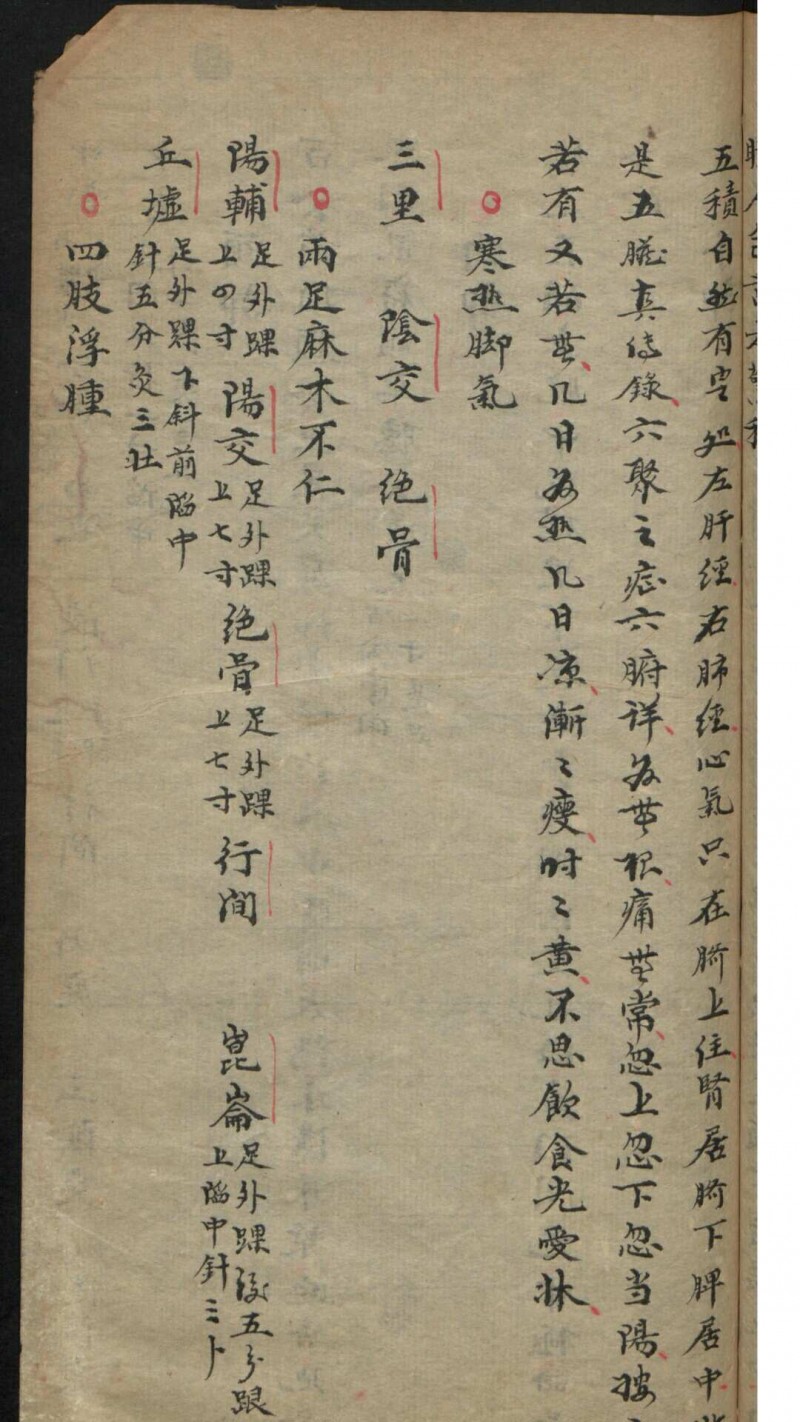 五積自然有定処左肝經右肺經心氣只在臍上住腎居臍下脾居中
是五臟真傳錄六聚之症六腑詳為無根痛無常忽上忽下忽当陽按
若有又若無几日為熱几日凉漸〻瘦时〻黄不思飲食光愛牀
○寒熱脚氣
三里 陰交 绝骨
○兩足麻木不仁
陽輔足外踝上四寸 陽交足外踝上七寸 绝骨足外踝上七寸 行间 崑崙足外踝後五分跟上陷中針三卜
丘墟足外踝下斜前陷中針五分灸三壮
○四肢浮腫